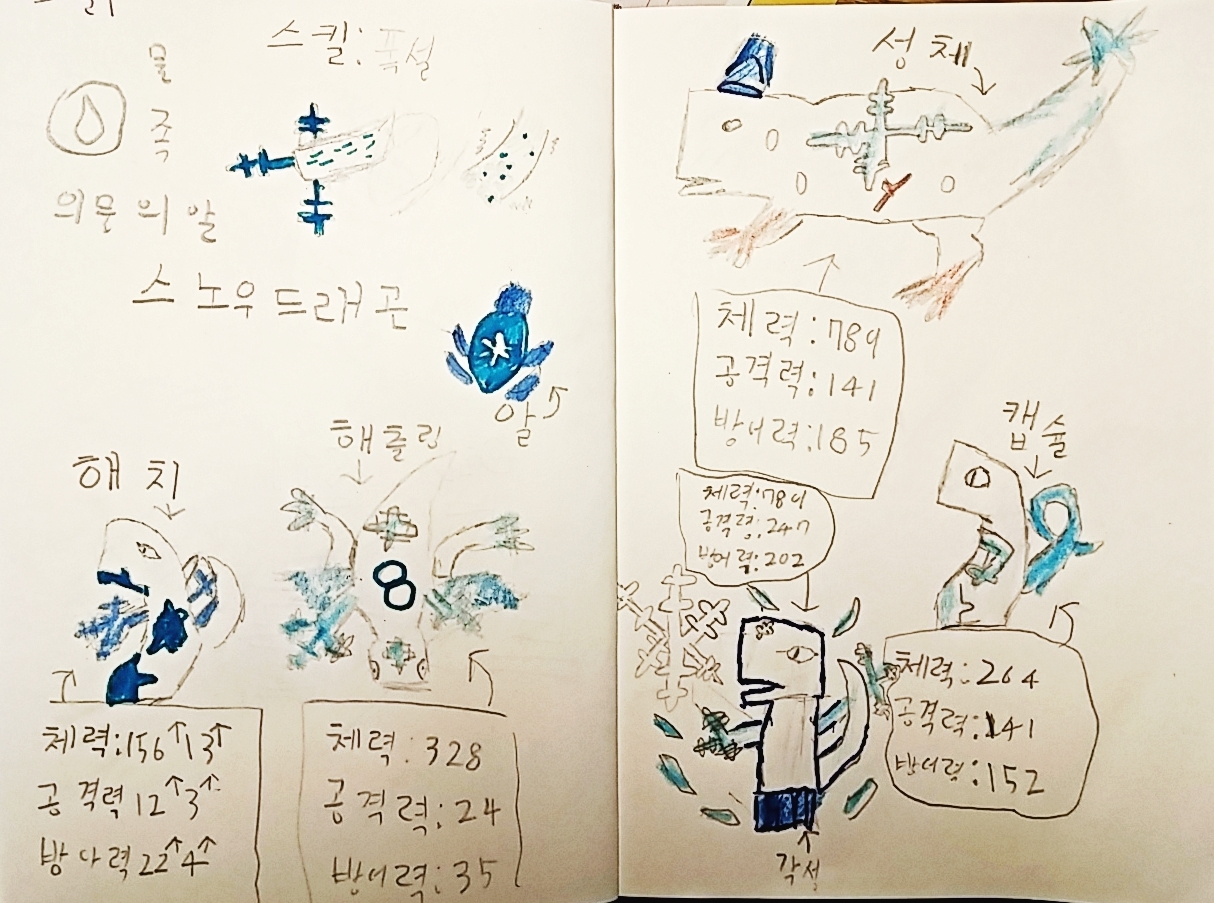 스킬: 폭설
물
족
의문의 알
스노우드래곤
알
해츨링
해치
체력:156↑13↑
공격력12↑3↑
방어력22↑4↑
8
체력:328
공격력:24
방어력:35
성체
체력:789
공격력:141
방어력:185
캡슐
체력:789
공격력:247
방어력:202
체력:264
공격력:141
방어력:152
각성